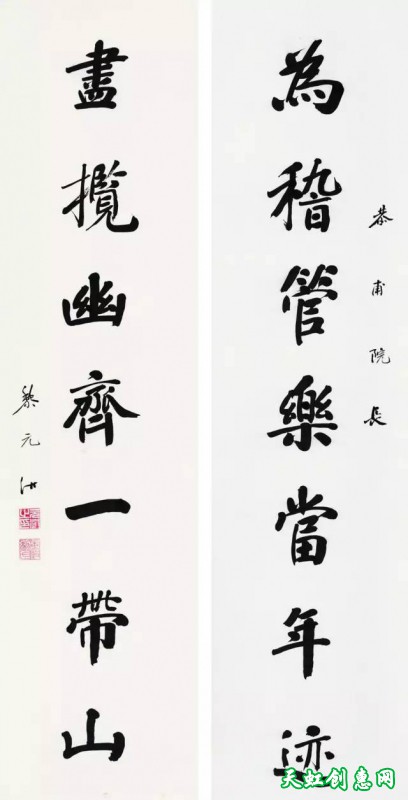 為稽管樂當年迹
恭甫院長
盡攬幽齊一帶山
黎元洪
天虹创惠网